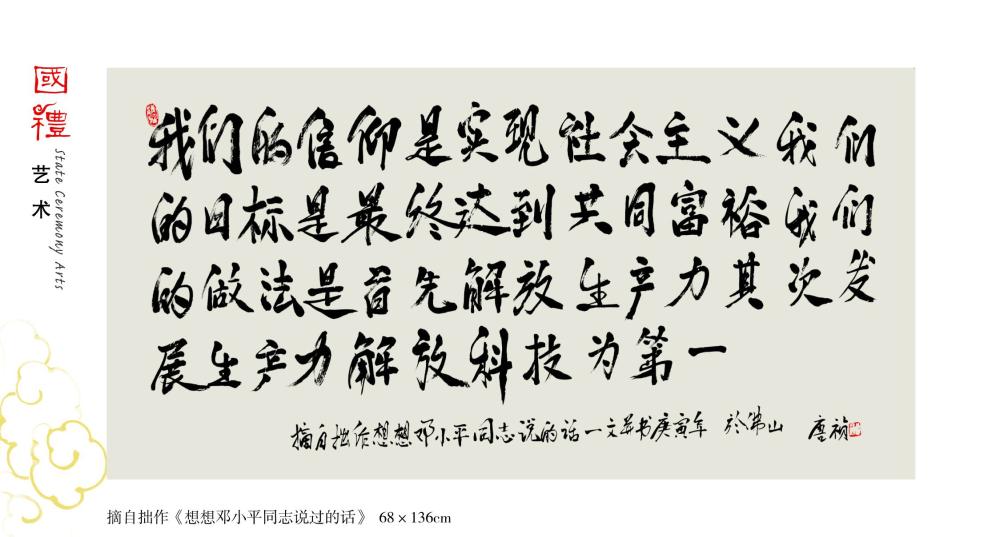 國禮
艺术
State Ceremony Arts
我们的信仰是实现社会主义我们
的目标是最终达到共同富裕我们
的做法是首先解放生产力其次发
展生产力解放科技为第一
摘自拙作想想邓小平同志说的话一文并书庚寅年 於佛山 唐祯
摘自拙作《想想邓小平同志说过的话》 68×136cm